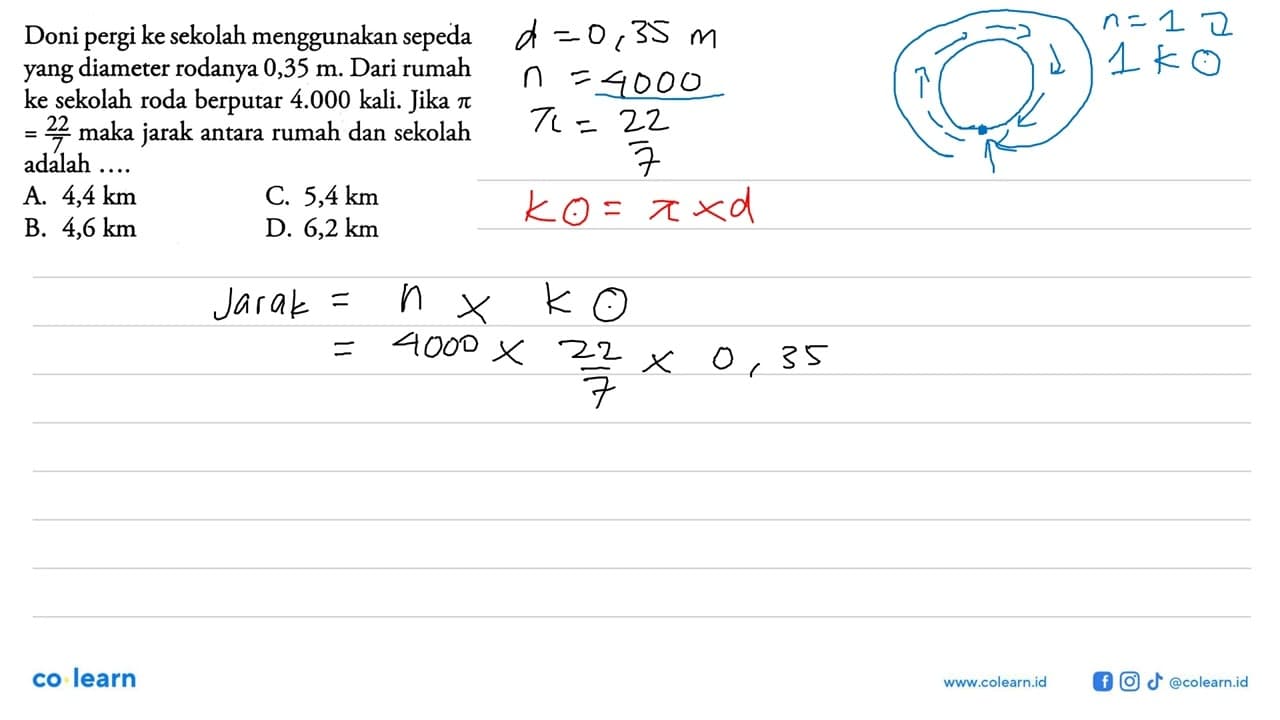 Doni pergi ke sekolah menggunakan sepeda
yang diameter rodanya 0,35 m. Dari rumah
ke sekolah roda berputar 4.000 kali. Jika π
= 22/7 maka jarak antara rumah dan sekolah
adalah ....
A. 4,4 km
C. 5,4 km
B. 4,6 km
D. 6,2 km
d = 0,35 m
n = 4000
π = 22/7
k⊙ = π × d
n = 1
1 k⊙
Jarak = n × k⊙
= 4000 × 22/7 × 0,35
co learn
www.colearn.id
@colearn.id